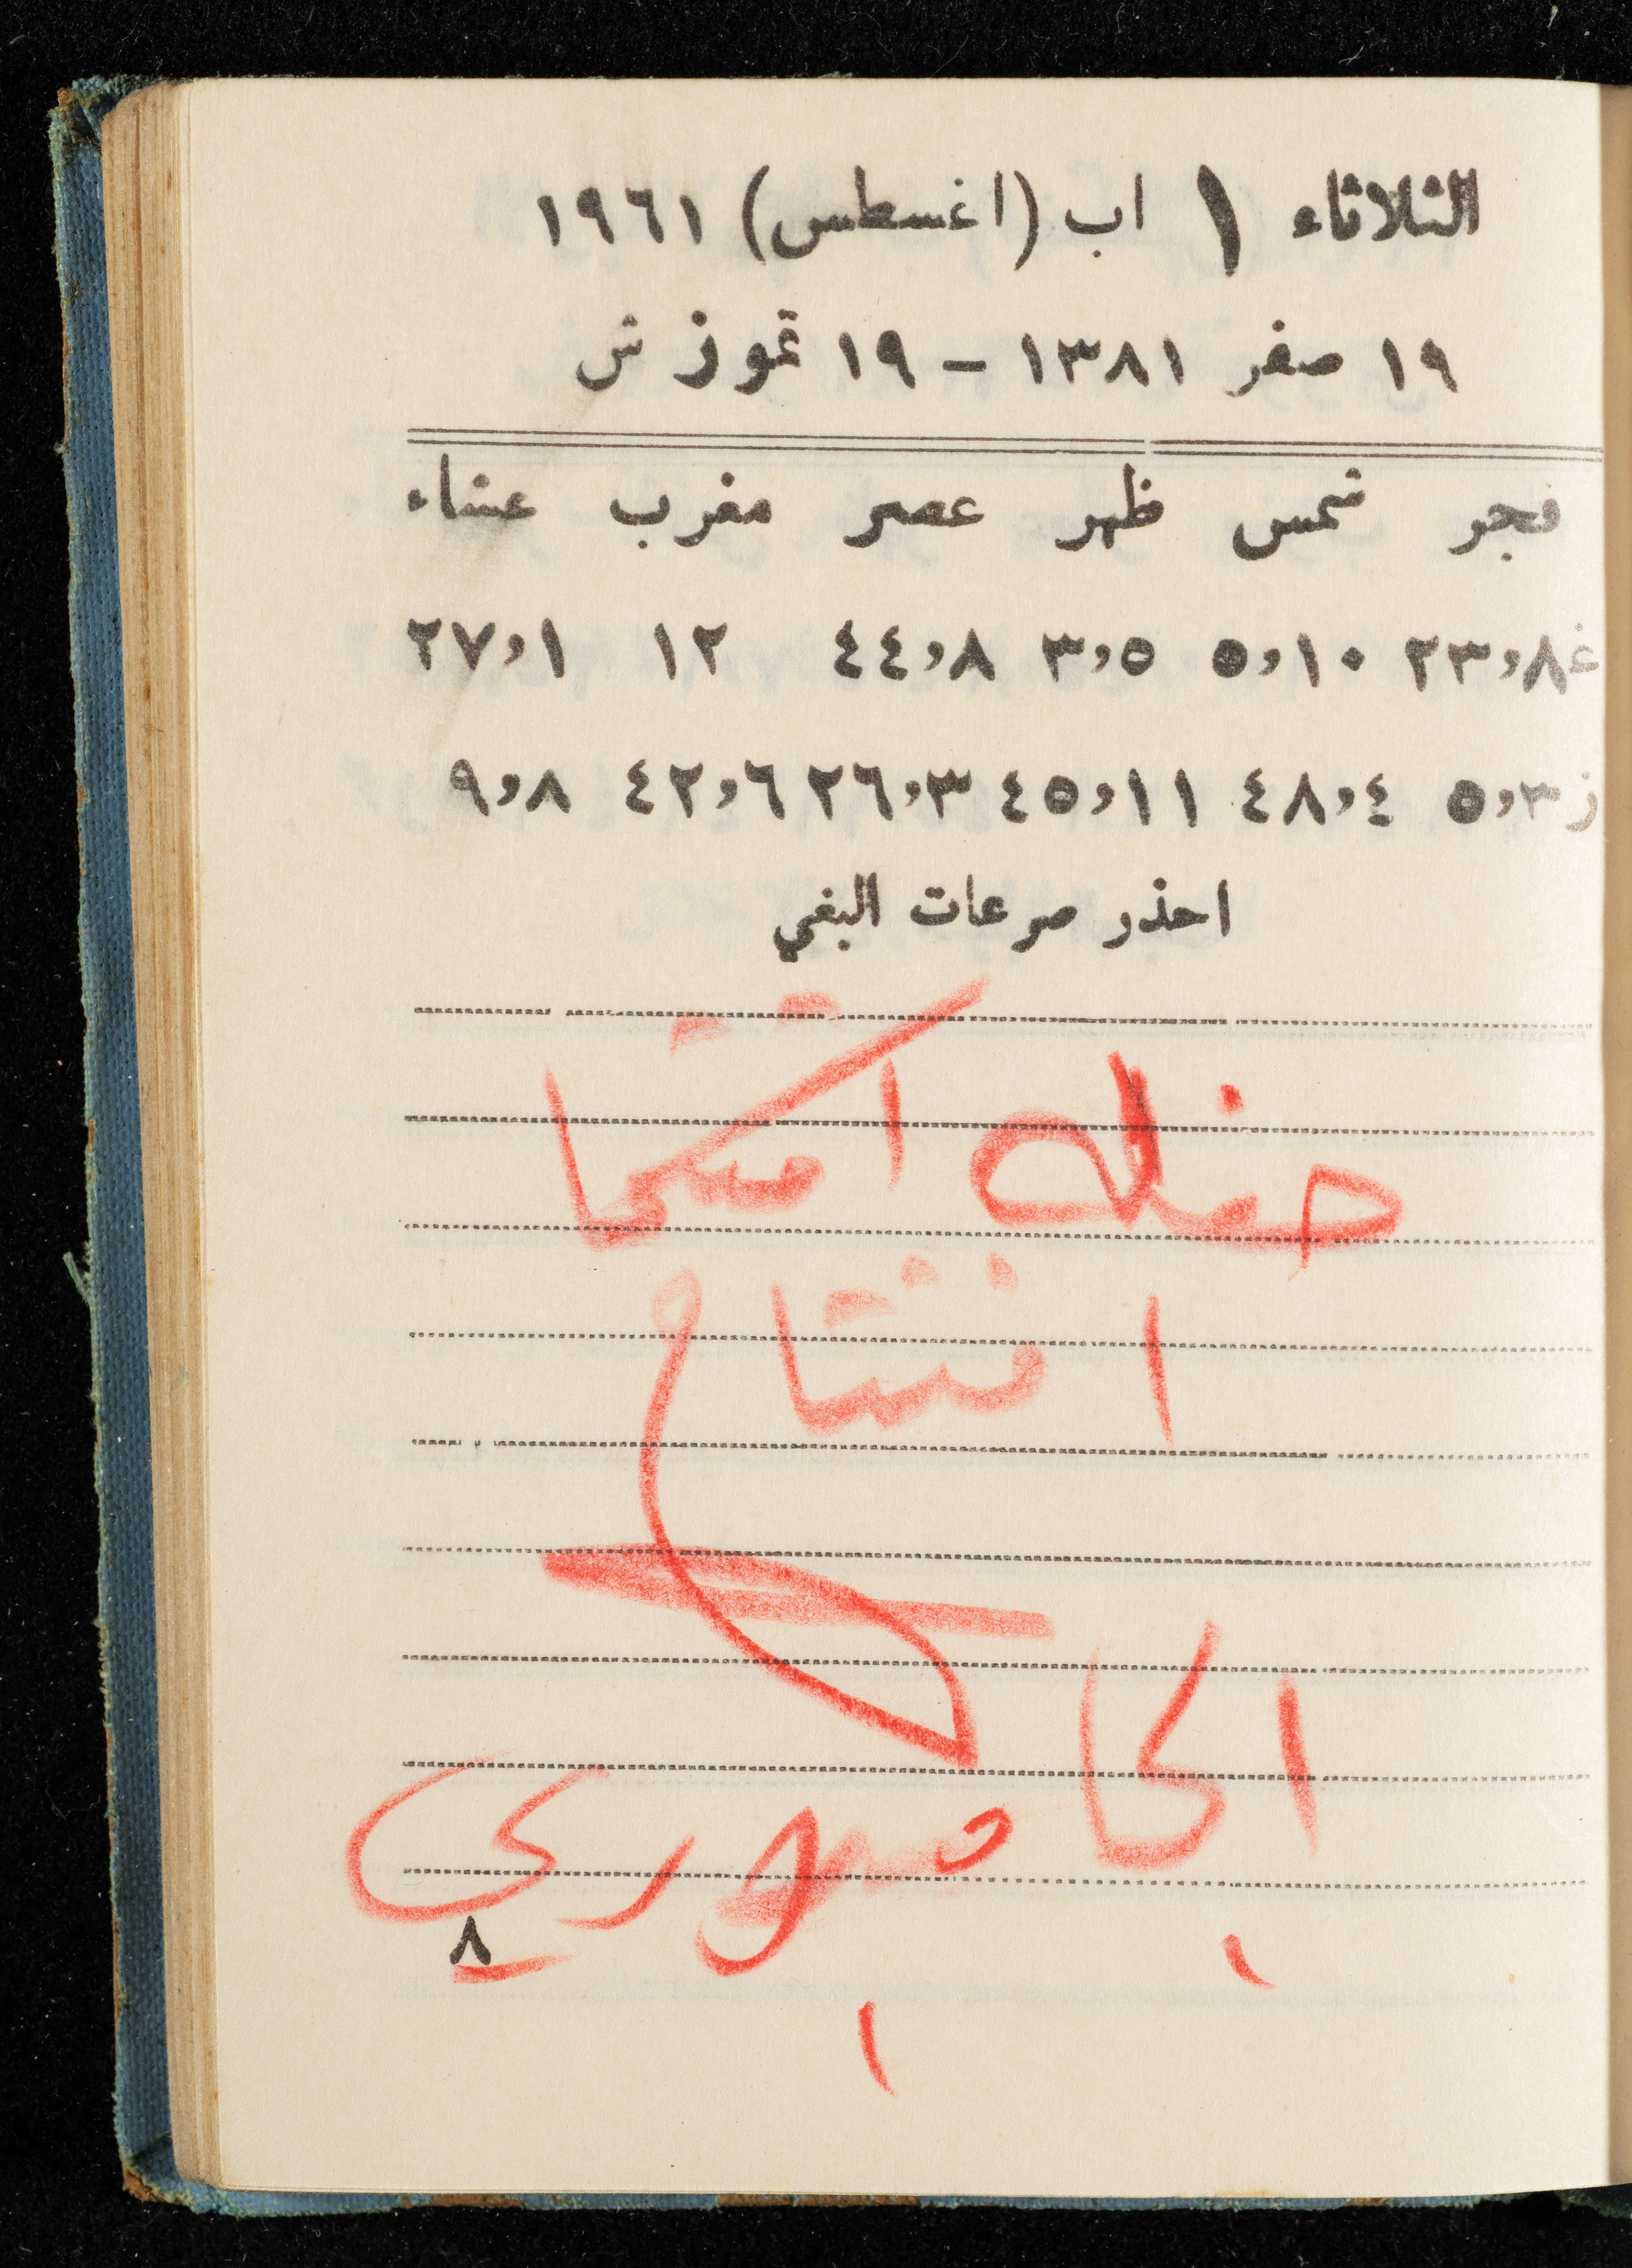 الثلاثاء ١ اب (اغسطس) ١٩٦١
١٩ صفر ١٣٨١ – ١٩ تموز ش
فجر شمس ظهر عصر مغرب عشاء
غ ٢٣,٨ ٥,١٠ ٣,٥ ٤٤,٨ ١٢ ٢٧,١
ز ٥,٣ ٤٨,٤ ٤٥,١١ ٢٦,٣ ٤٢,٦ ٩,٨
احذر صرعات البغي
حفله
افتتاح
٨